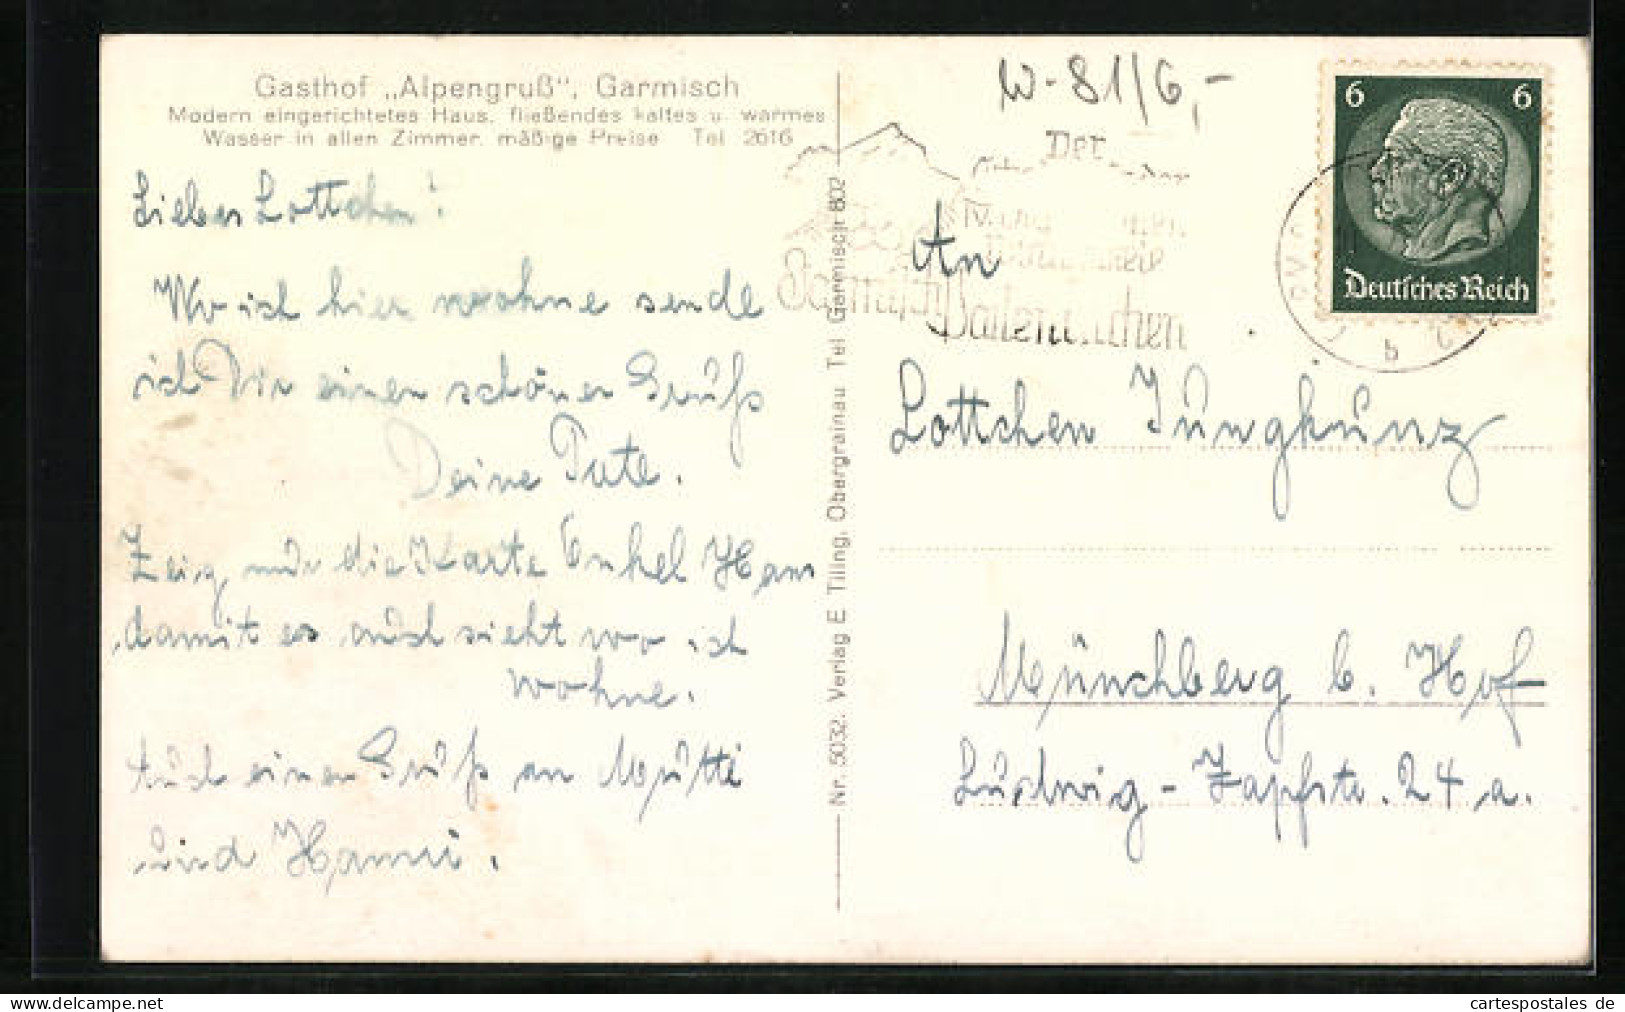 Gasthof „Alpengruß", Garmisch
Modern eingerichtetes Haus, fließendes kaltes u. warmes
Wasser in allen Zimmer, mäßige Preise Tel 2616
Liebes Lottchen!
Wo ich hier wohne sende
ich Dir einen schönen Gruß
Deine Tate.
Zeig mir die Karte Enkel Hans
damit es auch sieht wo ich
wohne.
Auch einen Gruß an Mutti
und Hanni.
Nr. 5032. Verlag E. Tiling, Obergrainau Tel Garmisch 802
W-81/6,-
Der
IV.
Garmisch
Partenkirchen
6 6
Deutsches Reich
b
An
Lottchen Jungkunz
Münchberg b. Hof
Ludwig-Zapfstr. 24 a.
cartespostales.de
www.delcampe.net